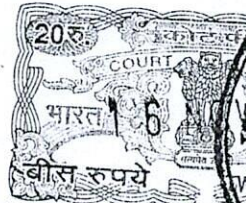 20रु.
COURT
भारत
16
बीस रुपये